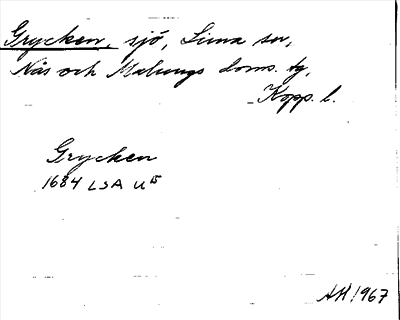 Grycken, sjö, Lima sn,
Nås och Malungs doms. tg,
Kopp. l.
Grycken
1684 LSA U 15
AH 1967